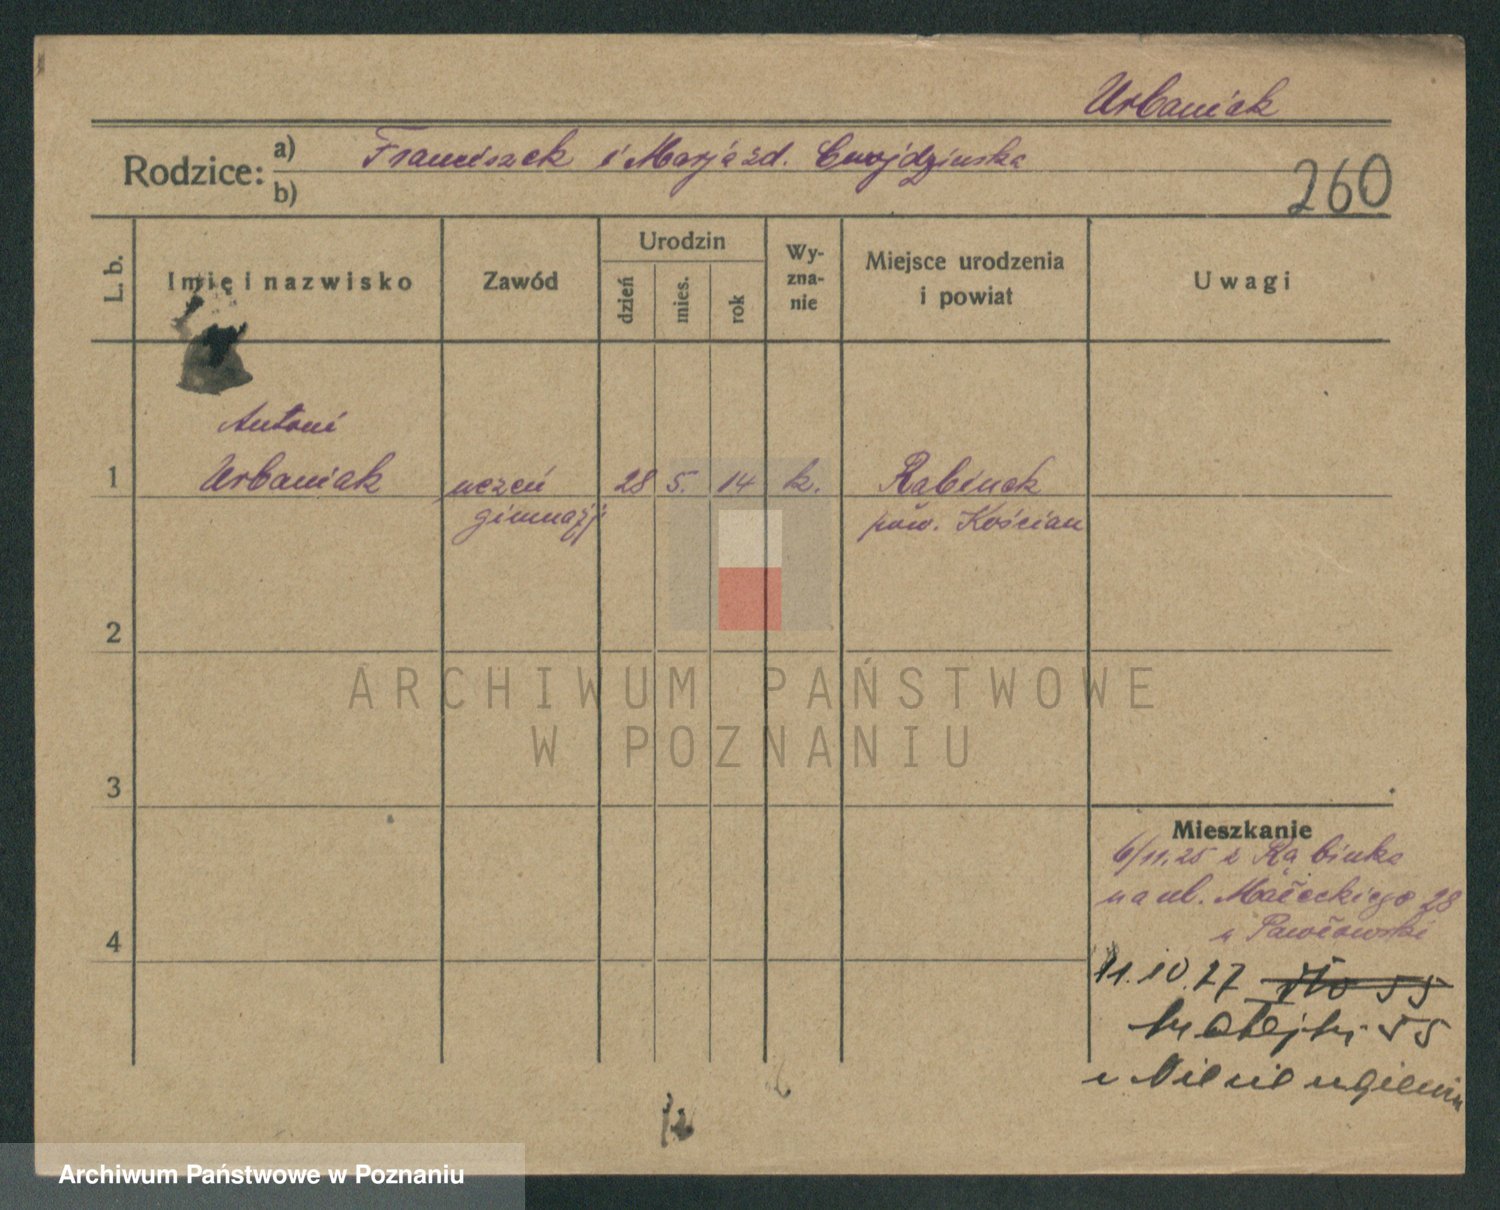 Urbaniak
Rodzice: a) Franciszek i Marja zd. Cwojdzińska
b)
260
L. b.
Imię i nazwisko
Zawód
Urodzin
dzień
mies.
rok
Wy-
zna-
nie
Miejsce urodzenia
i powiat
Uwagi
Antoni
1 Urbaniak uczeń 28 5. 14 k. Rąbinek
gimnazj. pow. Kościan
2
ARCHIWUM PAŃSTWOWE
W POZNANIU
3
Mieszkanie
6/11.25 z Rąbinka
na ul. Małeckiego 28
u Pawłowski
4
11.10.27 55
Matejki 55
u
Archiwum Państwowe w Poznaniu